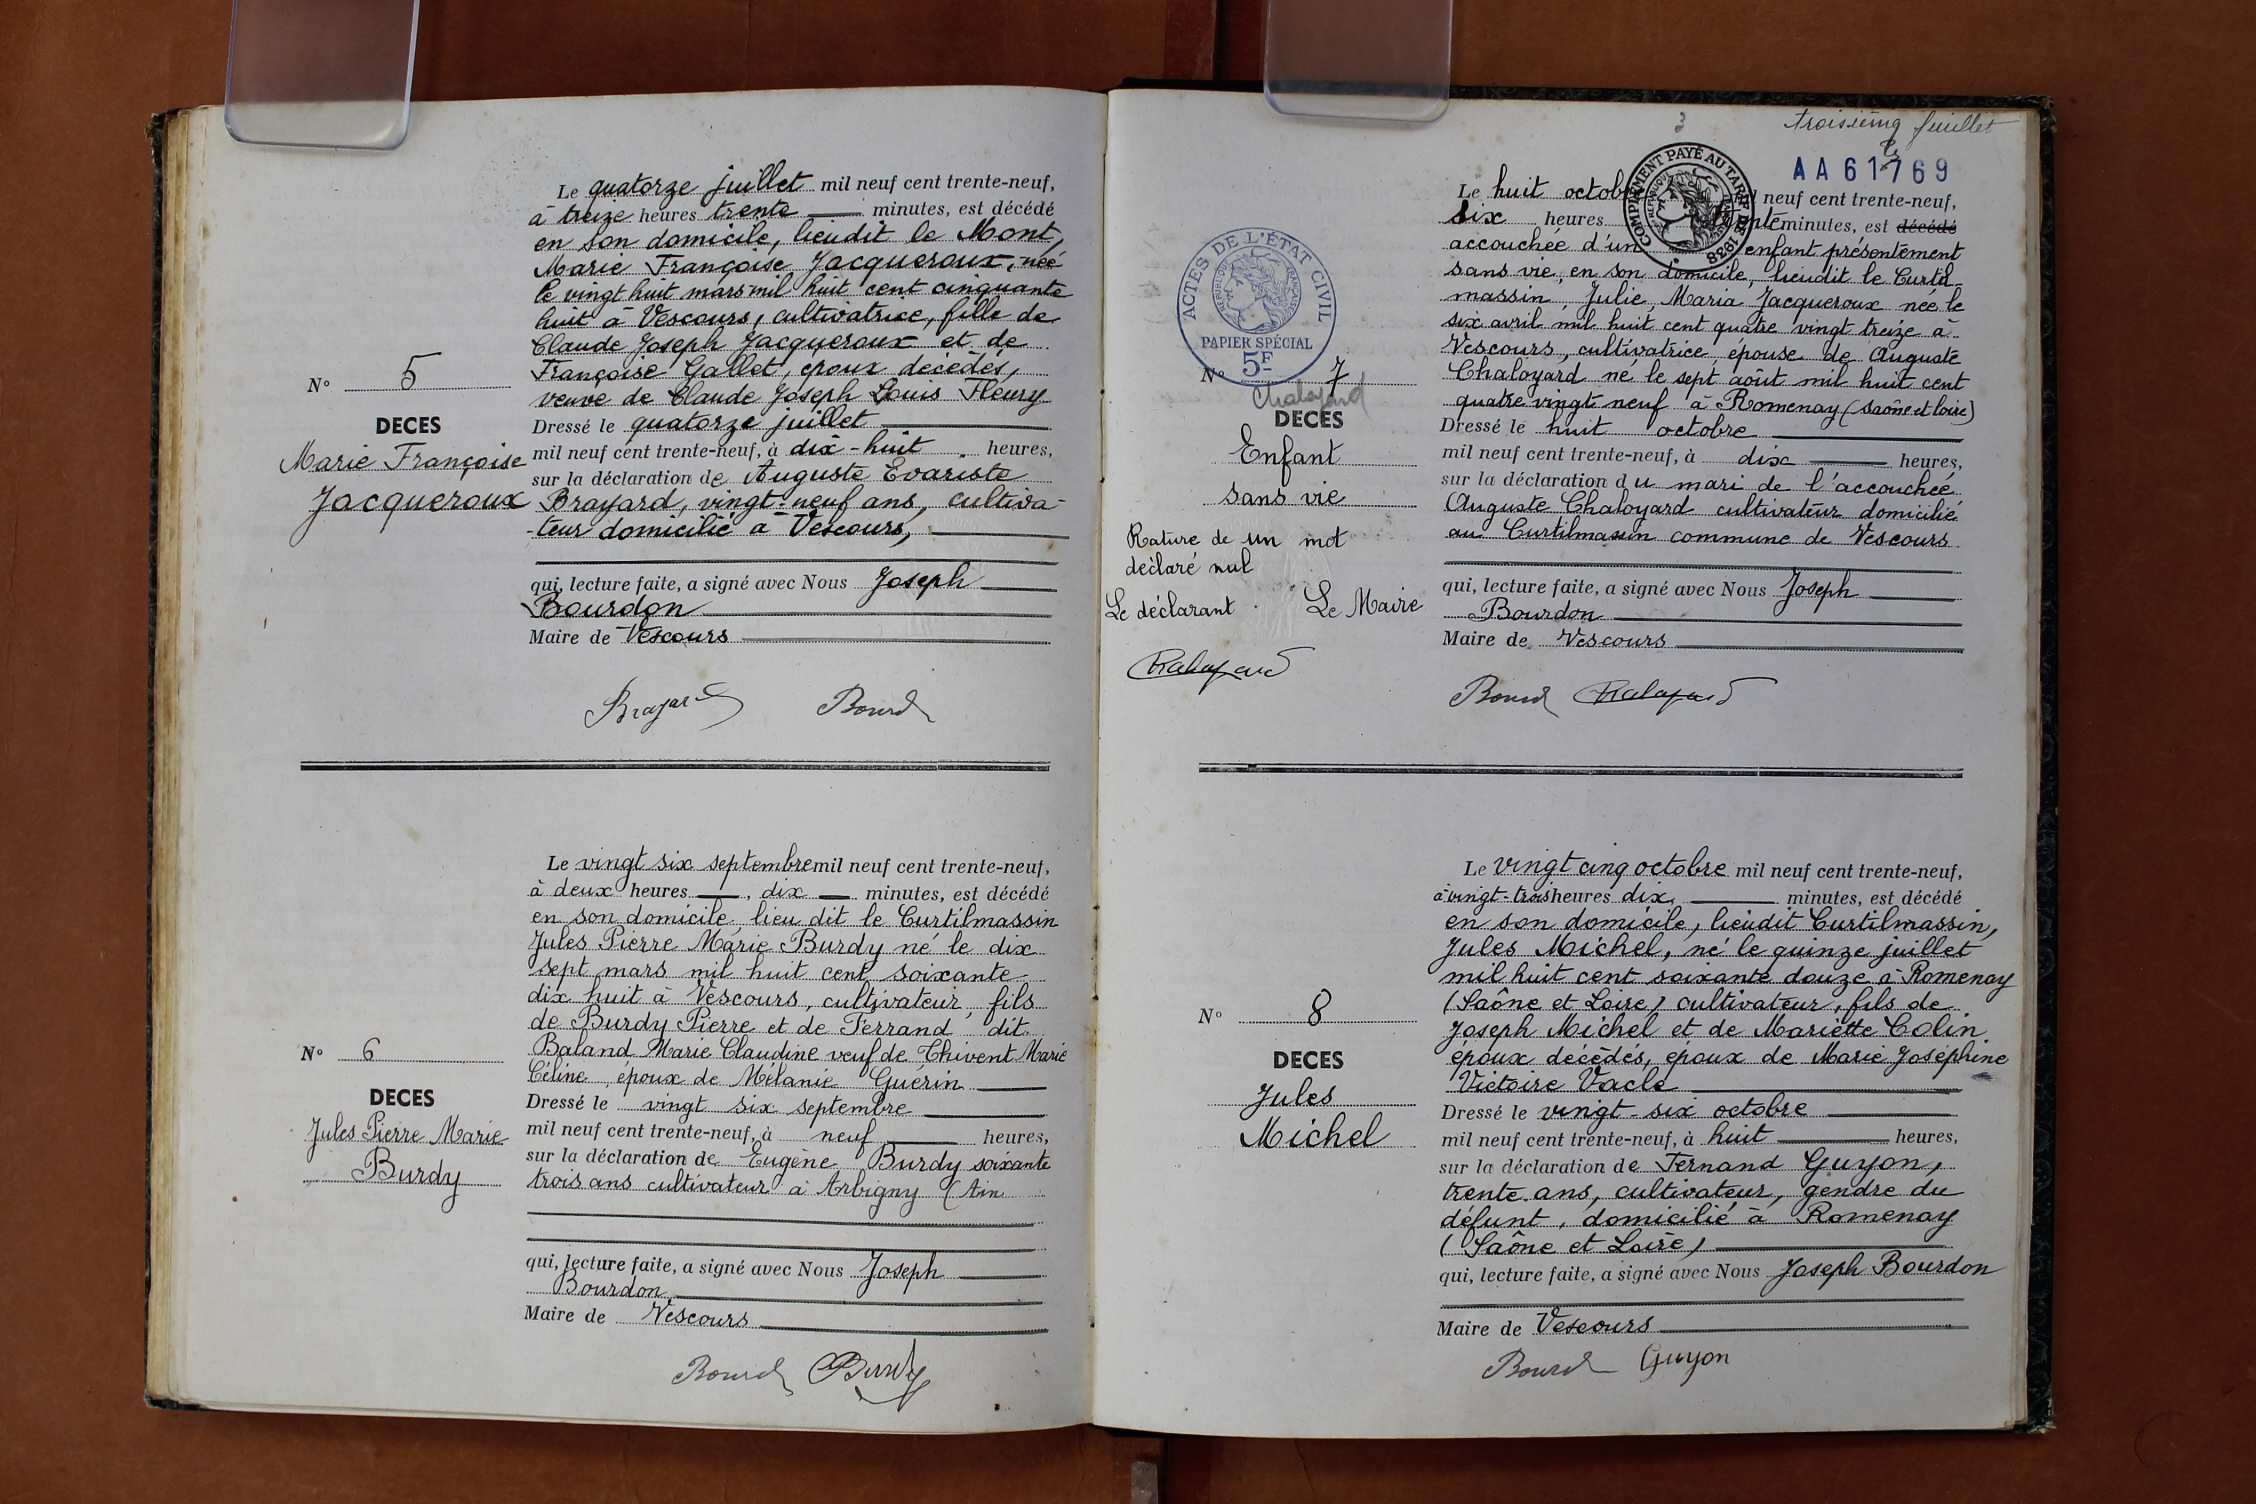 Le quatorze juillet mil neuf cent trente-neuf,
à treize heures trente minutes, est décédé
en son domicile, lieudit le Mont,
Marie Françoise Jacqueroux, née
le vingt huit mars mil huit cent cinquante
huit à Vescours, cultivatrice, fille de
Claude Joseph Jacqueroux et de
Françoise Gallet, époux décédés,
veuve de Claude Joseph Louis Fleury
Dressé le quatorze juillet
mil neuf cent trente-neuf, à dix-huit heures,
sur la déclaration de Auguste Evariste
Brayard, vingt-neuf ans, cultiva-
-teur domicilié à Vescours,
qui, lecture faite, a signé avec Nous Joseph
Bourdon
Maire de Vescours
N° 5
DECES
Marie Françoise
Jacqueroux
Brayard Bourd
Le vingt six septembre mil neuf cent trente-neuf,
à deux heures, dix minutes, est décédé
en son domicile, lieu dit le Curtilmassin
Jules Pierre Marie Burdy né le dix
sept mars mil huit cent soixante
dix huit à Vescours, cultivateur, fils
de Burdy Pierre et de Ferrand dit
Baland Marie Claudine veuf de Thivent Marie
Céline, époux de Mélanie Guérin
Dressé le vingt six septembre
mil neuf cent trente-neuf, à neuf heures,
sur la déclaration de Eugène Burdy soixante
trois ans cultivateur à Arbigny (Ain
qui, lecture faite, a signé avec Nous Joseph
Bourdon
Maire de Vescours
N° 6
DECES
Jules Pierre Marie
Burdy
Bourd Burdy
3
troisième feuillet
AA61769
COMPLÉMENT PAYÉ AU TARIF DE 1938
Le huit octob neuf cent trente-neuf,
six heures minutes, est décédé
accouchée d'un enfant présentement
sans vie, en son domicile, lieudit le Curtil
massin, Julie Maria Jacqueroux née le
six avril mil huit cent quatre vingt treize à
Vescours, cultivatrice, épouse de Auguste
Chaloyard né le sept août mil huit cent
quatre vingt neuf à Romenay (Saône et Loire)
Dressé le huit octobre
mil neuf cent trente-neuf, à dix heures,
sur la déclaration du mari de l'accouchée
Auguste Chaloyard cultivateur domicilié
au Curtilmassin commune de Vescours
qui, lecture faite, a signé avec Nous Joseph
Bourdon
Maire de Vescours
ACTES DE L'ÉTAT CIVIL
RÉPUBLIQUE FRANÇAISE
PAPIER SPÉCIAL
5F
N° 7
Chaloyard
DECES
Enfant
sans vie
Rature de un mot
déclaré nul
Le déclarant Le Maire
Chaloyard
Bourd Chaloyard
Le vingt cinq octobre mil neuf cent trente-neuf,
à vingt-trois heures dix minutes, est décédé
en son domicile, lieudit Curtilmassin,
Jules Michel, né le quinze juillet
mil huit cent soixante douze à Romenay
(Saône et Loire) cultivateur, fils de
Joseph Michel et de Mariette Colin
époux décédés, époux de Marie Joséphine
Victoire Vacle
Dressé le vingt-six octobre
mil neuf cent trente-neuf, à huit heures,
sur la déclaration de Fernand Guyon,
trente ans, cultivateur, gendre du
défunt, domicilié à Romenay
(Saône et Loire)
qui, lecture faite, a signé avec Nous Joseph Bourdon
Maire de Vescours
N° 8
DECES
Jules
Michel
Bourd Guyon